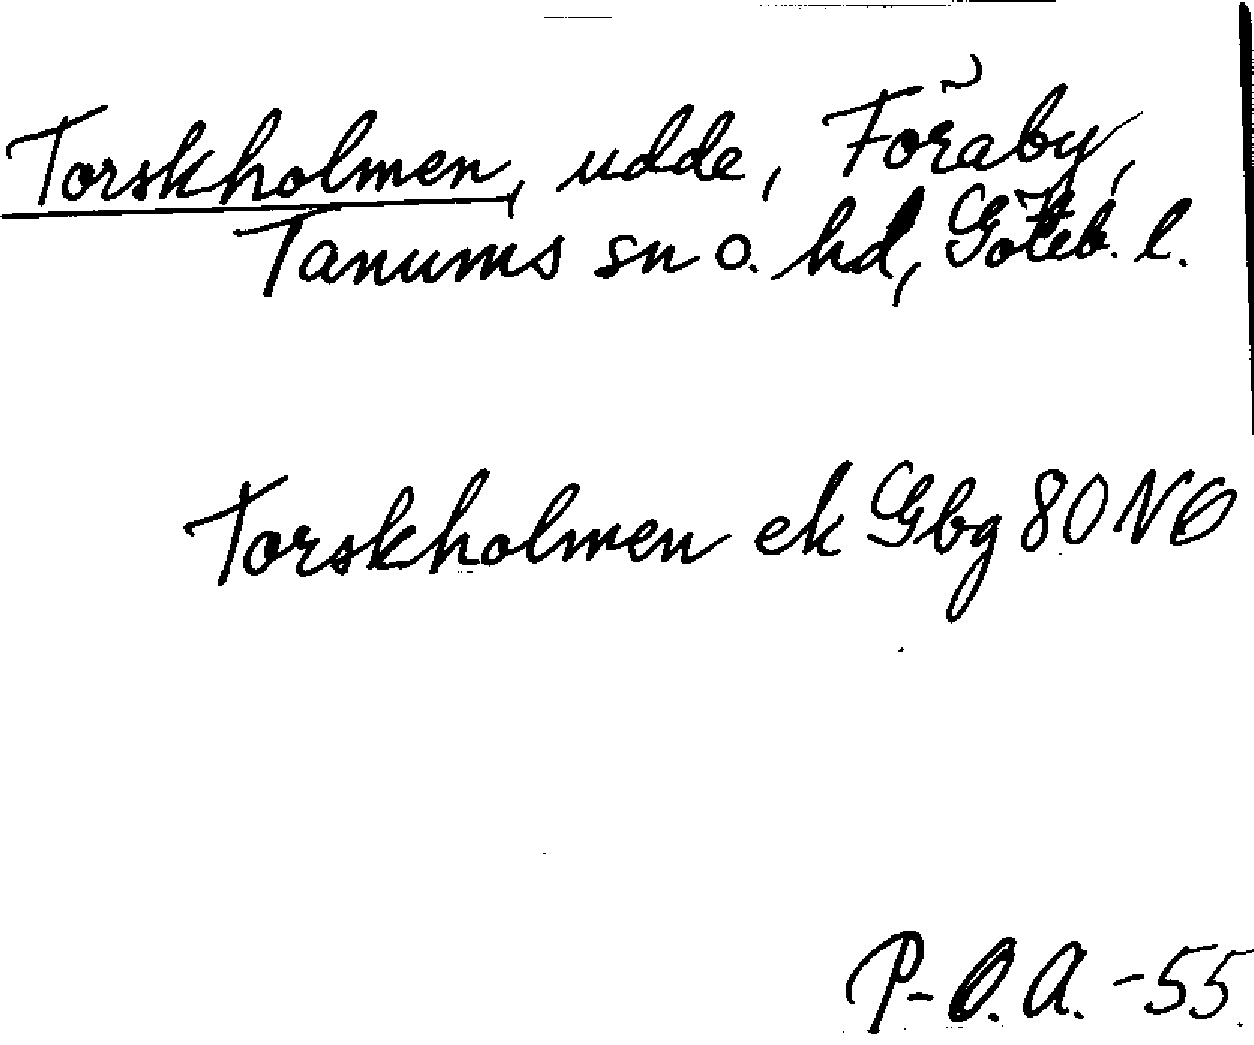 Torskholmen, udde, Föraby,
Tanums sn o. hd, Göteb. l.
Torskholmen ek Gbg 80 NÖ
P-O.A. -55